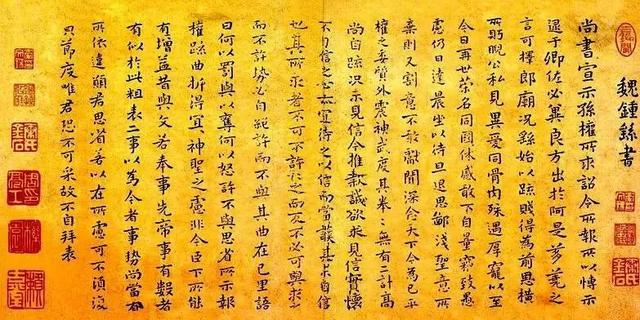 魏鍾繇書
尚書宣示孫權所求詔令所報所以博示
逮于卿佐必冀良方出於阿是芻蕘之
言可擇郎廟況繇始以疏賤得為前恩橫
所盱睨公私見異愛同骨肉殊遇厚寵以至
今日再世榮名同國休慼敢不自量竊致愚
慮仍日達晨坐以待旦退思鄙淺聖意所
棄則又割意不敢獻聞深念天下今為已平
權之委質外震神武度其拳々無有二計高
尚自疏況未見信今推款誠欲求見信實懷
不自信之心亦宜待之以信而當護其未自信
也其所求者不可不許々之而反不必可與求之
而不許勢必自絕許而不與其曲在己里語
曰何以罰與以奪何以怒許不與思省所示報
權疏曲折得宜々神聖之慮非今臣下所能
有增益昔與文若奉事先帝事有數者
有似於此粗表二事以為今者事勢尚當有
所依違願君思省若以在所慮可不須復
節度唯君恐不可采故不自拜表